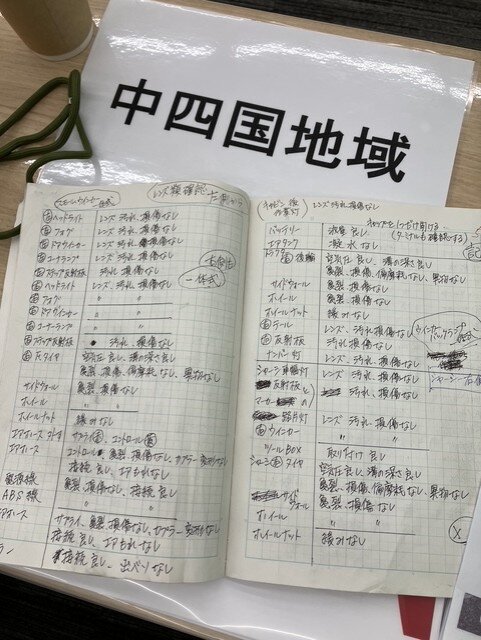 中四国地域
レンズ類確認 左側から
ヘッドライト レンズ 汚れ、損傷なし
フォグ レンズ 汚れ、損傷なし
ドアウインカー レンズ 汚れ、損傷なし
コーナランプ レンズ 汚れ、損傷なし
ステップ反射板 汚れ、損傷なし
ヘッドライト レンズ 汚れ、損傷なし
一体式
フォグ 〃 〃
ドアウインカー 〃 〃
コーナーランプ 〃 〃
ステップ反射板 汚れ、損傷なし
前タイヤ 空気圧良し、溝の深さ良し
亀裂、損傷、偏摩耗なし、異物なし
サイドウォール 亀裂、損傷なし
ホイール 〃 〃
ホイールナット 緩みなし
エアホース
亀裂、損傷なし
接続良し、エアもれなし
電源線 亀裂、損傷なし、接続良し
ABS線 〃 〃
エアホース サプライ、亀裂、損傷なし
接続良し、エアもれなし
キャビン後 作業灯 レンズ汚れ、損傷なし
バッテリー 液量良し
(ターミナルも確認する)
エアタンク 凝水なし
後輪 空気圧良し、溝の深さ良し
亀裂、損傷、偏摩耗なし、異物なし
サイドウォール 亀裂、損傷なし
ホイール 〃 〃
ホイールナット 緩みなし
テール レンズ、汚れ、損傷なし
反射板 汚れ、損傷なし
ナンバー灯 レンズ、汚れ、損傷なし
シャーシ車幅灯 レンズ、汚れ、損傷なし
反射板 汚れ、損傷なし
マーカー
路肩灯 レンズ 汚れ、損傷なし
ウインカー 〃 〃
ツールBOX 取り付け良し
シャーシ タイヤ 空気圧良し、溝の深さ良し
亀裂、損傷、偏摩耗なし、異物なし
サイドウォール 亀裂、損傷なし
ホイール 〃
ホイールナット 緩みなし